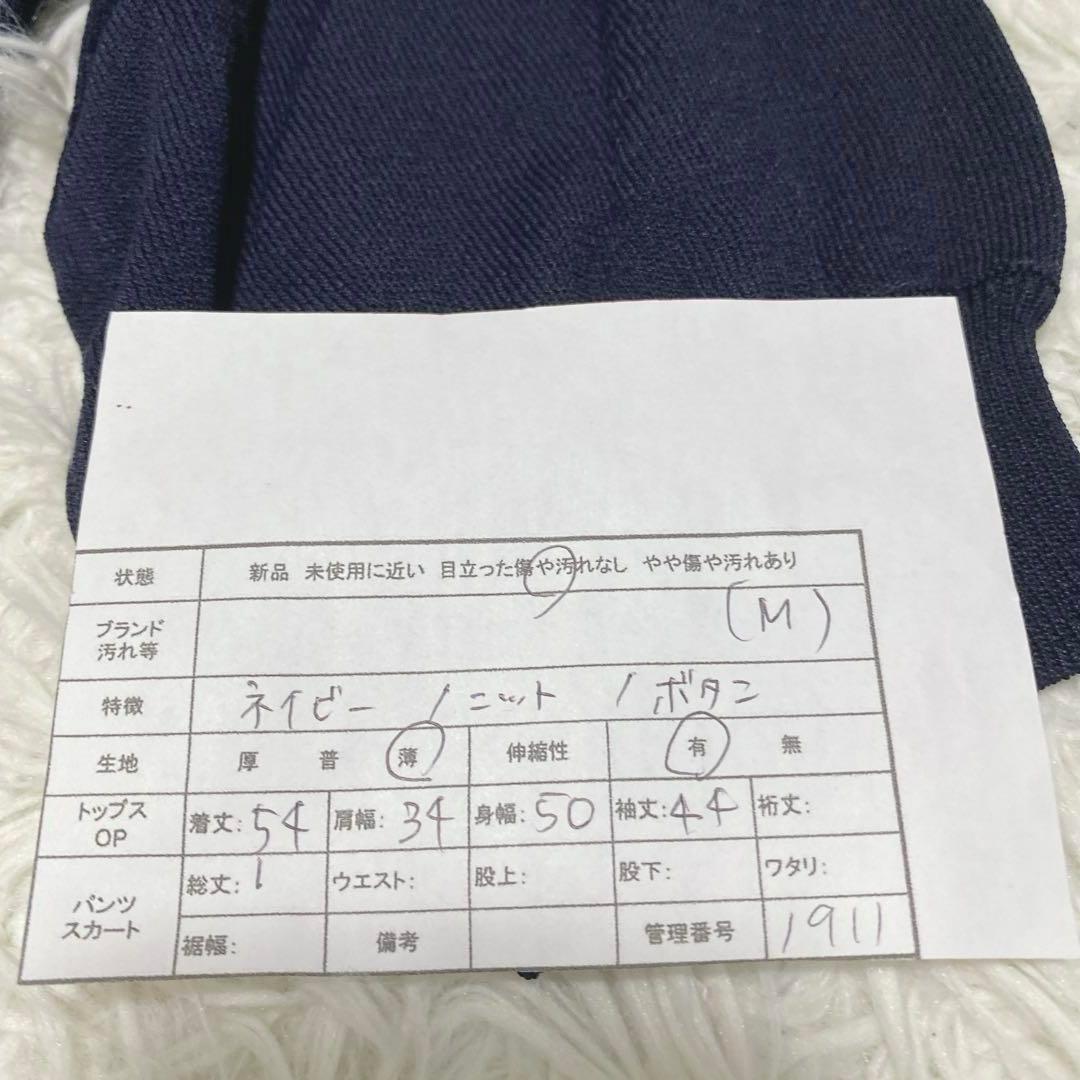 状態 新品 未使用に近い 目立った傷や汚れなし やや傷や汚れあり
ブランド
汚れ等
(M)
特徴 ネイビー / ニット / ボタン
生地 厚 普 薄 伸縮性 有 無
トップス
OP
着丈:54 肩幅:34 身幅:50 袖丈:44 裄丈:
パンツ
スカート
総丈: ウエスト: 股上: 股下: ワタリ:
裾幅: 備考 管理番号 1911